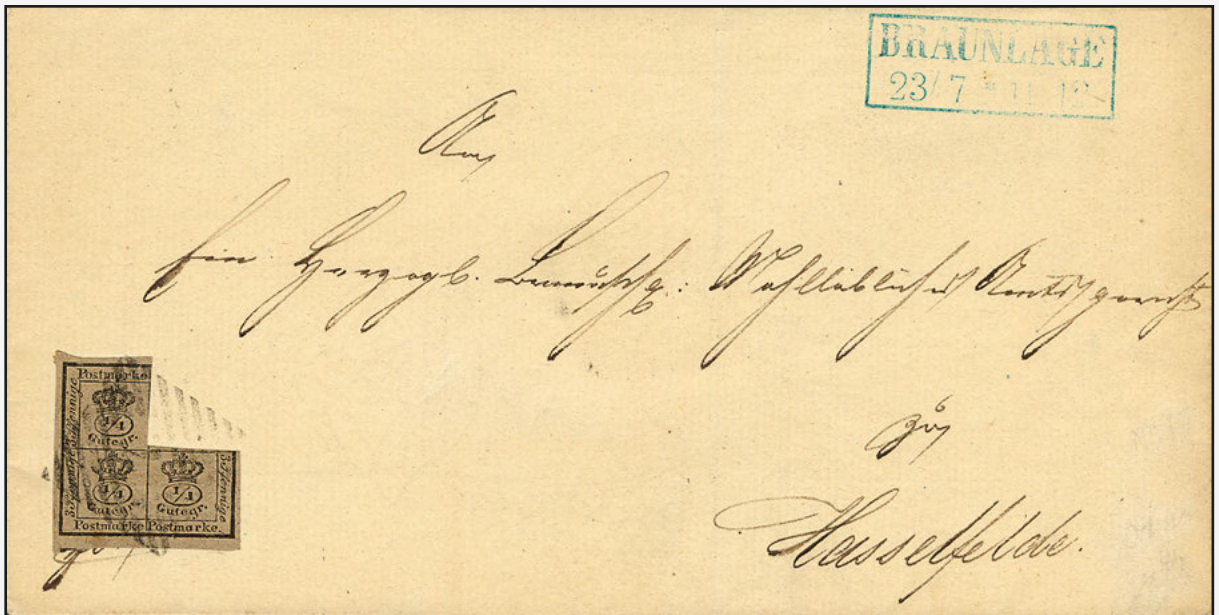 BRAUNLAGE
23/7 * 11-12
An
Ein Herzogl. Braunschg: Wohllöbliches Amtsgericht
zu
Hasselfelde.
Postmarke
3 Pfennige
1/4
Gutegr.
3 Pfennige
1/4
Gutegr.
Postmarke
1/4
Gutegr.
3 Pfennige
Postmarke.